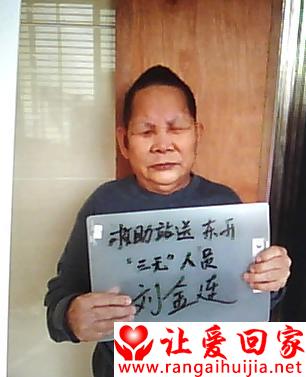 救助站送 东开
"三无"人员
刘金连
让爱回家
www.rangaihuijia.net